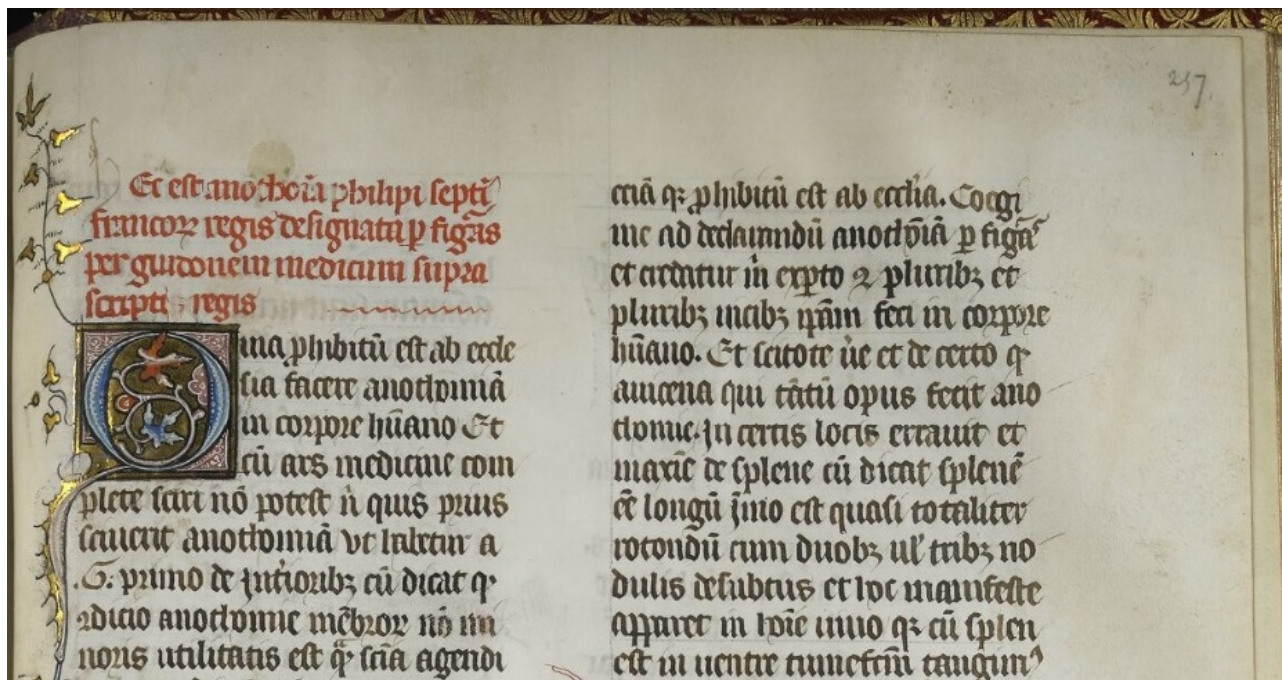 257.
Ec est anothomia philipi septī
francoꝝ regis designata ꝑ figas
per guidonem medicum supra
scripti regis
Quia ꝓhibitū est ab eccle
sia facere anothomiā
in corpore hūano Et
cū ars medicine com
plete sciri nō potest n̄ quis prius
sciuerit anothomiā vt habetur a
.G. primo de īnterioribꝫ cū dicat qꝫ
anothomie mēbroꝝ nō mi
noris utilitatis est scīa agendi
etiā qꝫ ꝓhibitū est ab ecclīa. Coegi
me ad declarandū anothōiā ꝑ figas
et credatur in exꝑto ⁊ pluribꝫ et
pluribꝫ uicibꝫ feci in corpore
hūano. Et scitote et de certo qꝫ
auicena qui tātū opus fecit ano
thomie. In certis locis errauit et
maxīe de splene cū dicat splenē
eē longū īmo est quasi totaliter
rotondū cum duobꝫ uel̓ tribꝫ no
dulis desubtus et hoc manifeste
apparet in hoīe uiuo qꝫ cū splen
est in uentre tangun